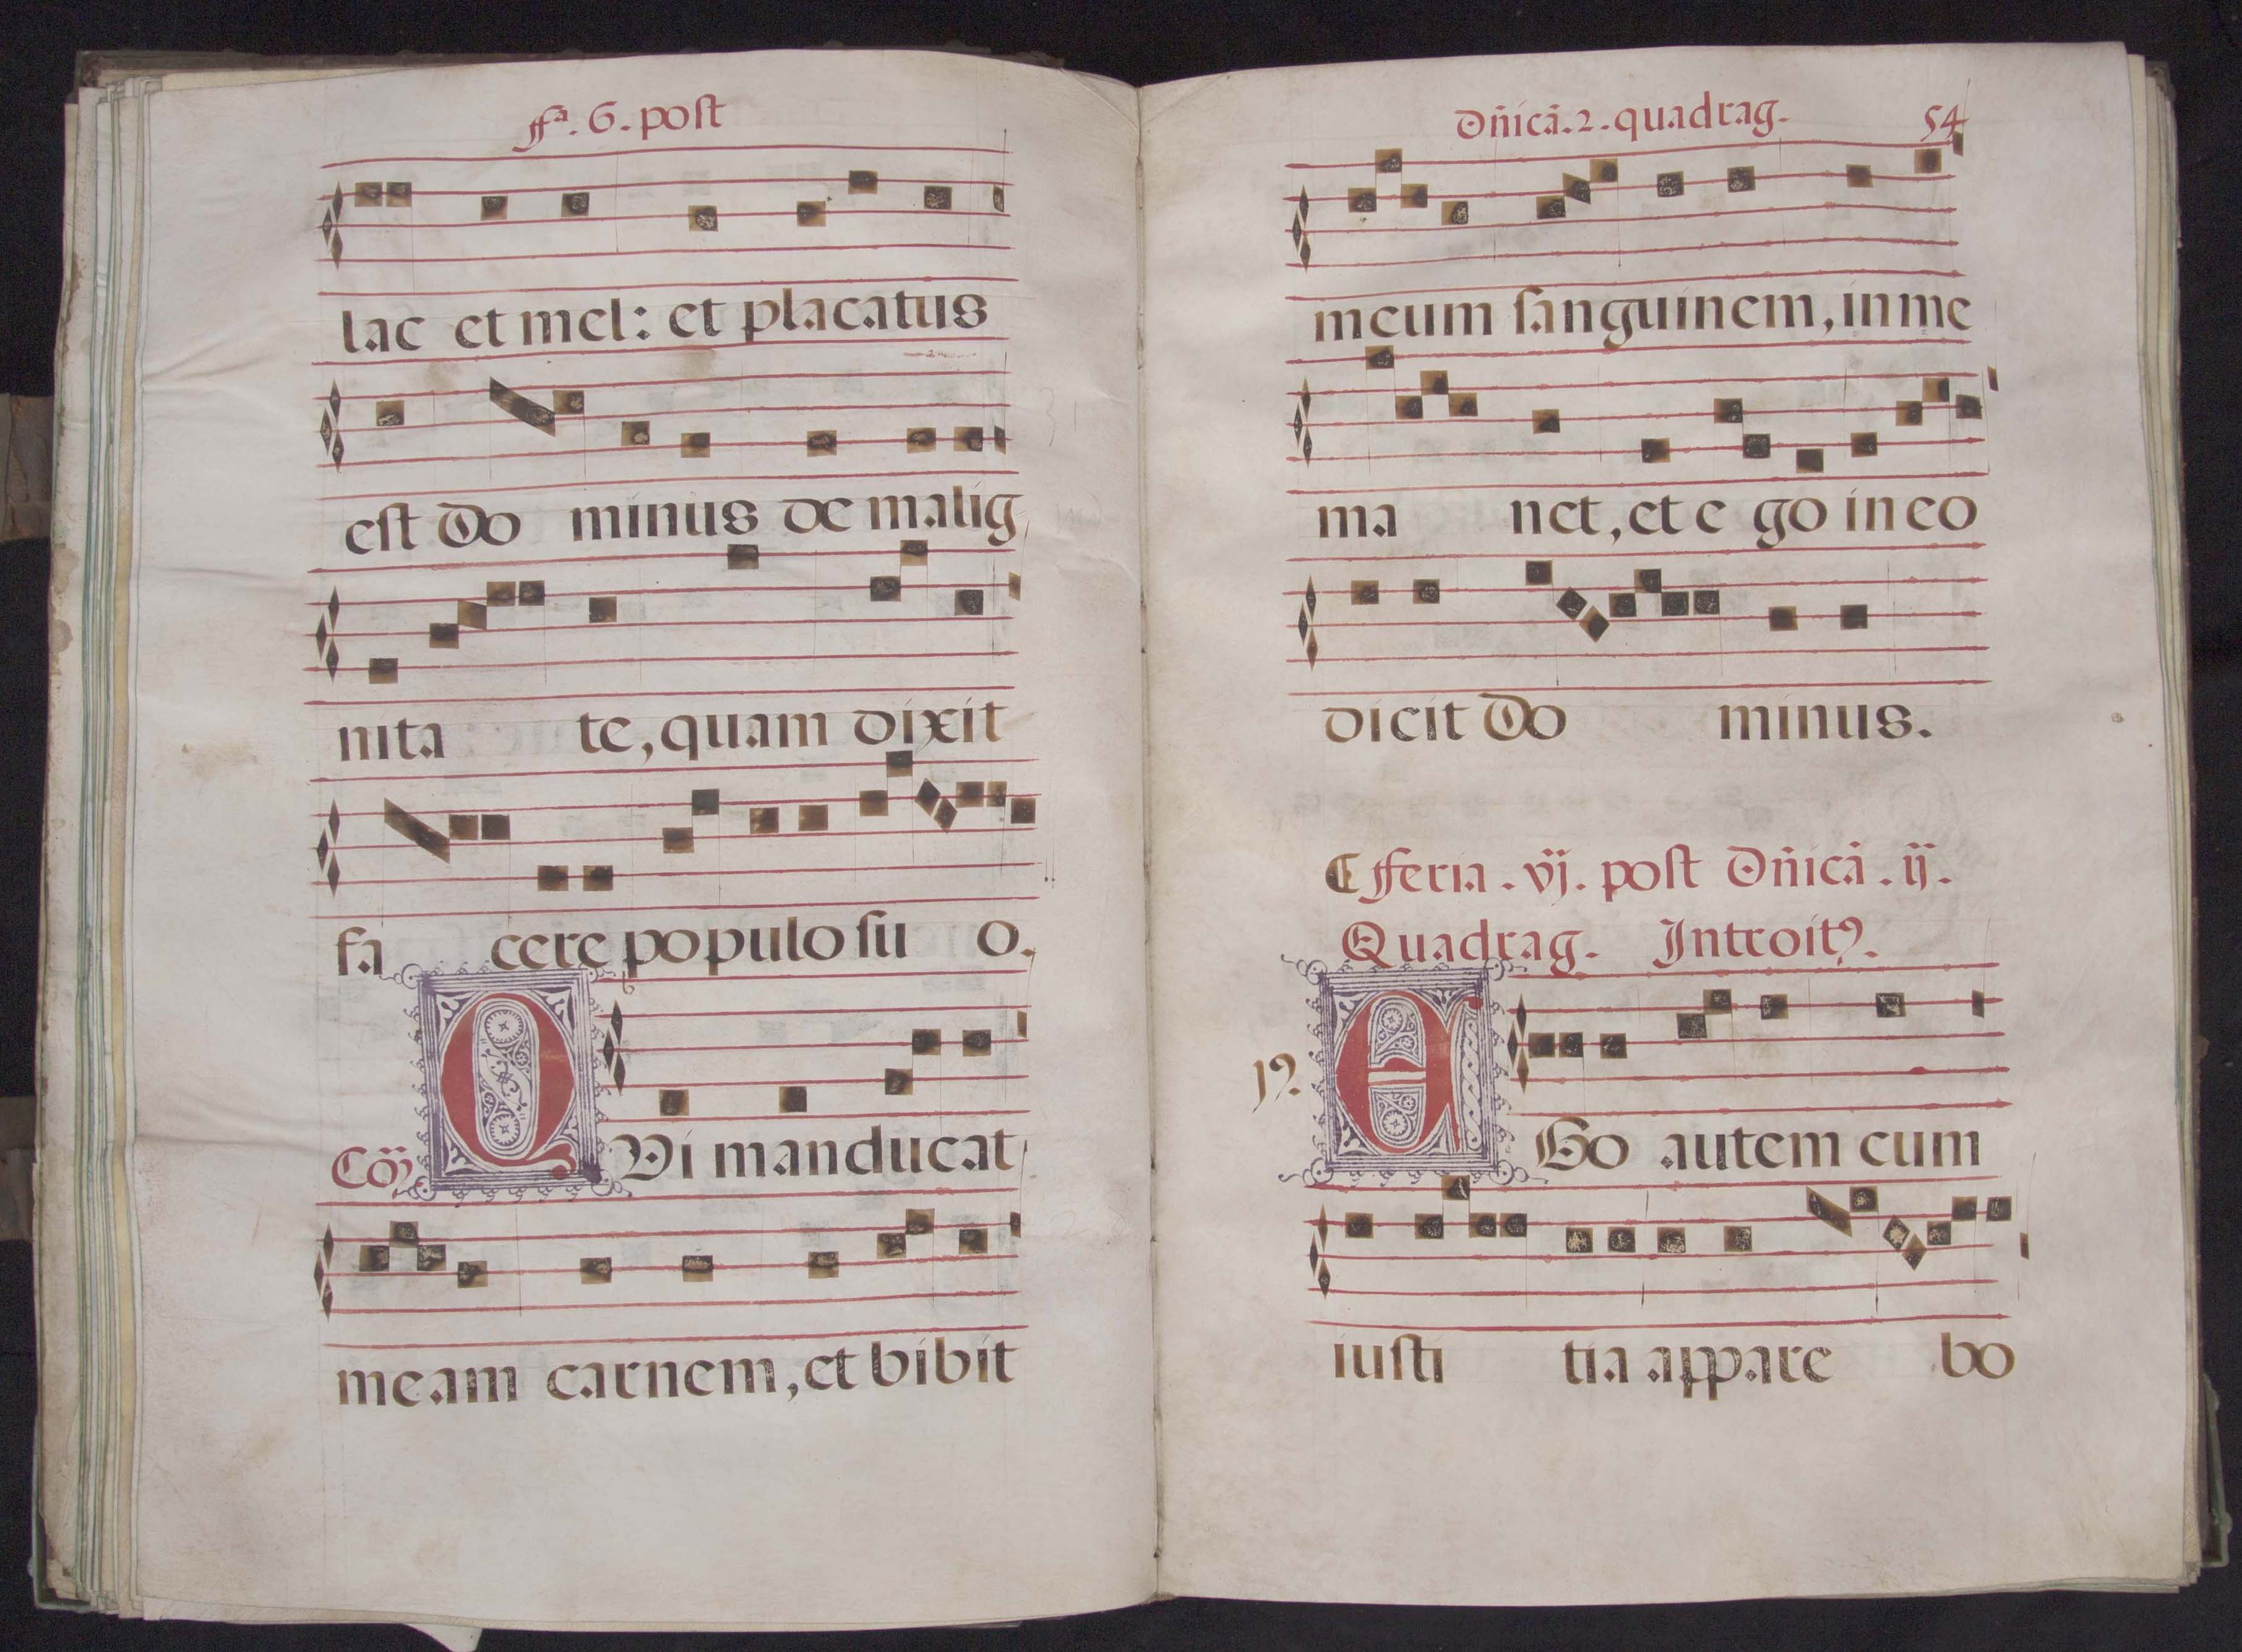 ffª. 6. post
lac et mel: et placatus
est Do minus de malig
nita te, quam dixit
fa cere populo su o.
Cõ. QVi manducat
meam carnem, et bibit
Dñicã. 2. quadrag. 54
meum sanguinem, in me
ma net, et e go in eo
dicit Do minus.
fferia. vj. post Dñicã. ij.
Quadrag. Introitꝰ.
EGo autem cum
iusti tia appare bo